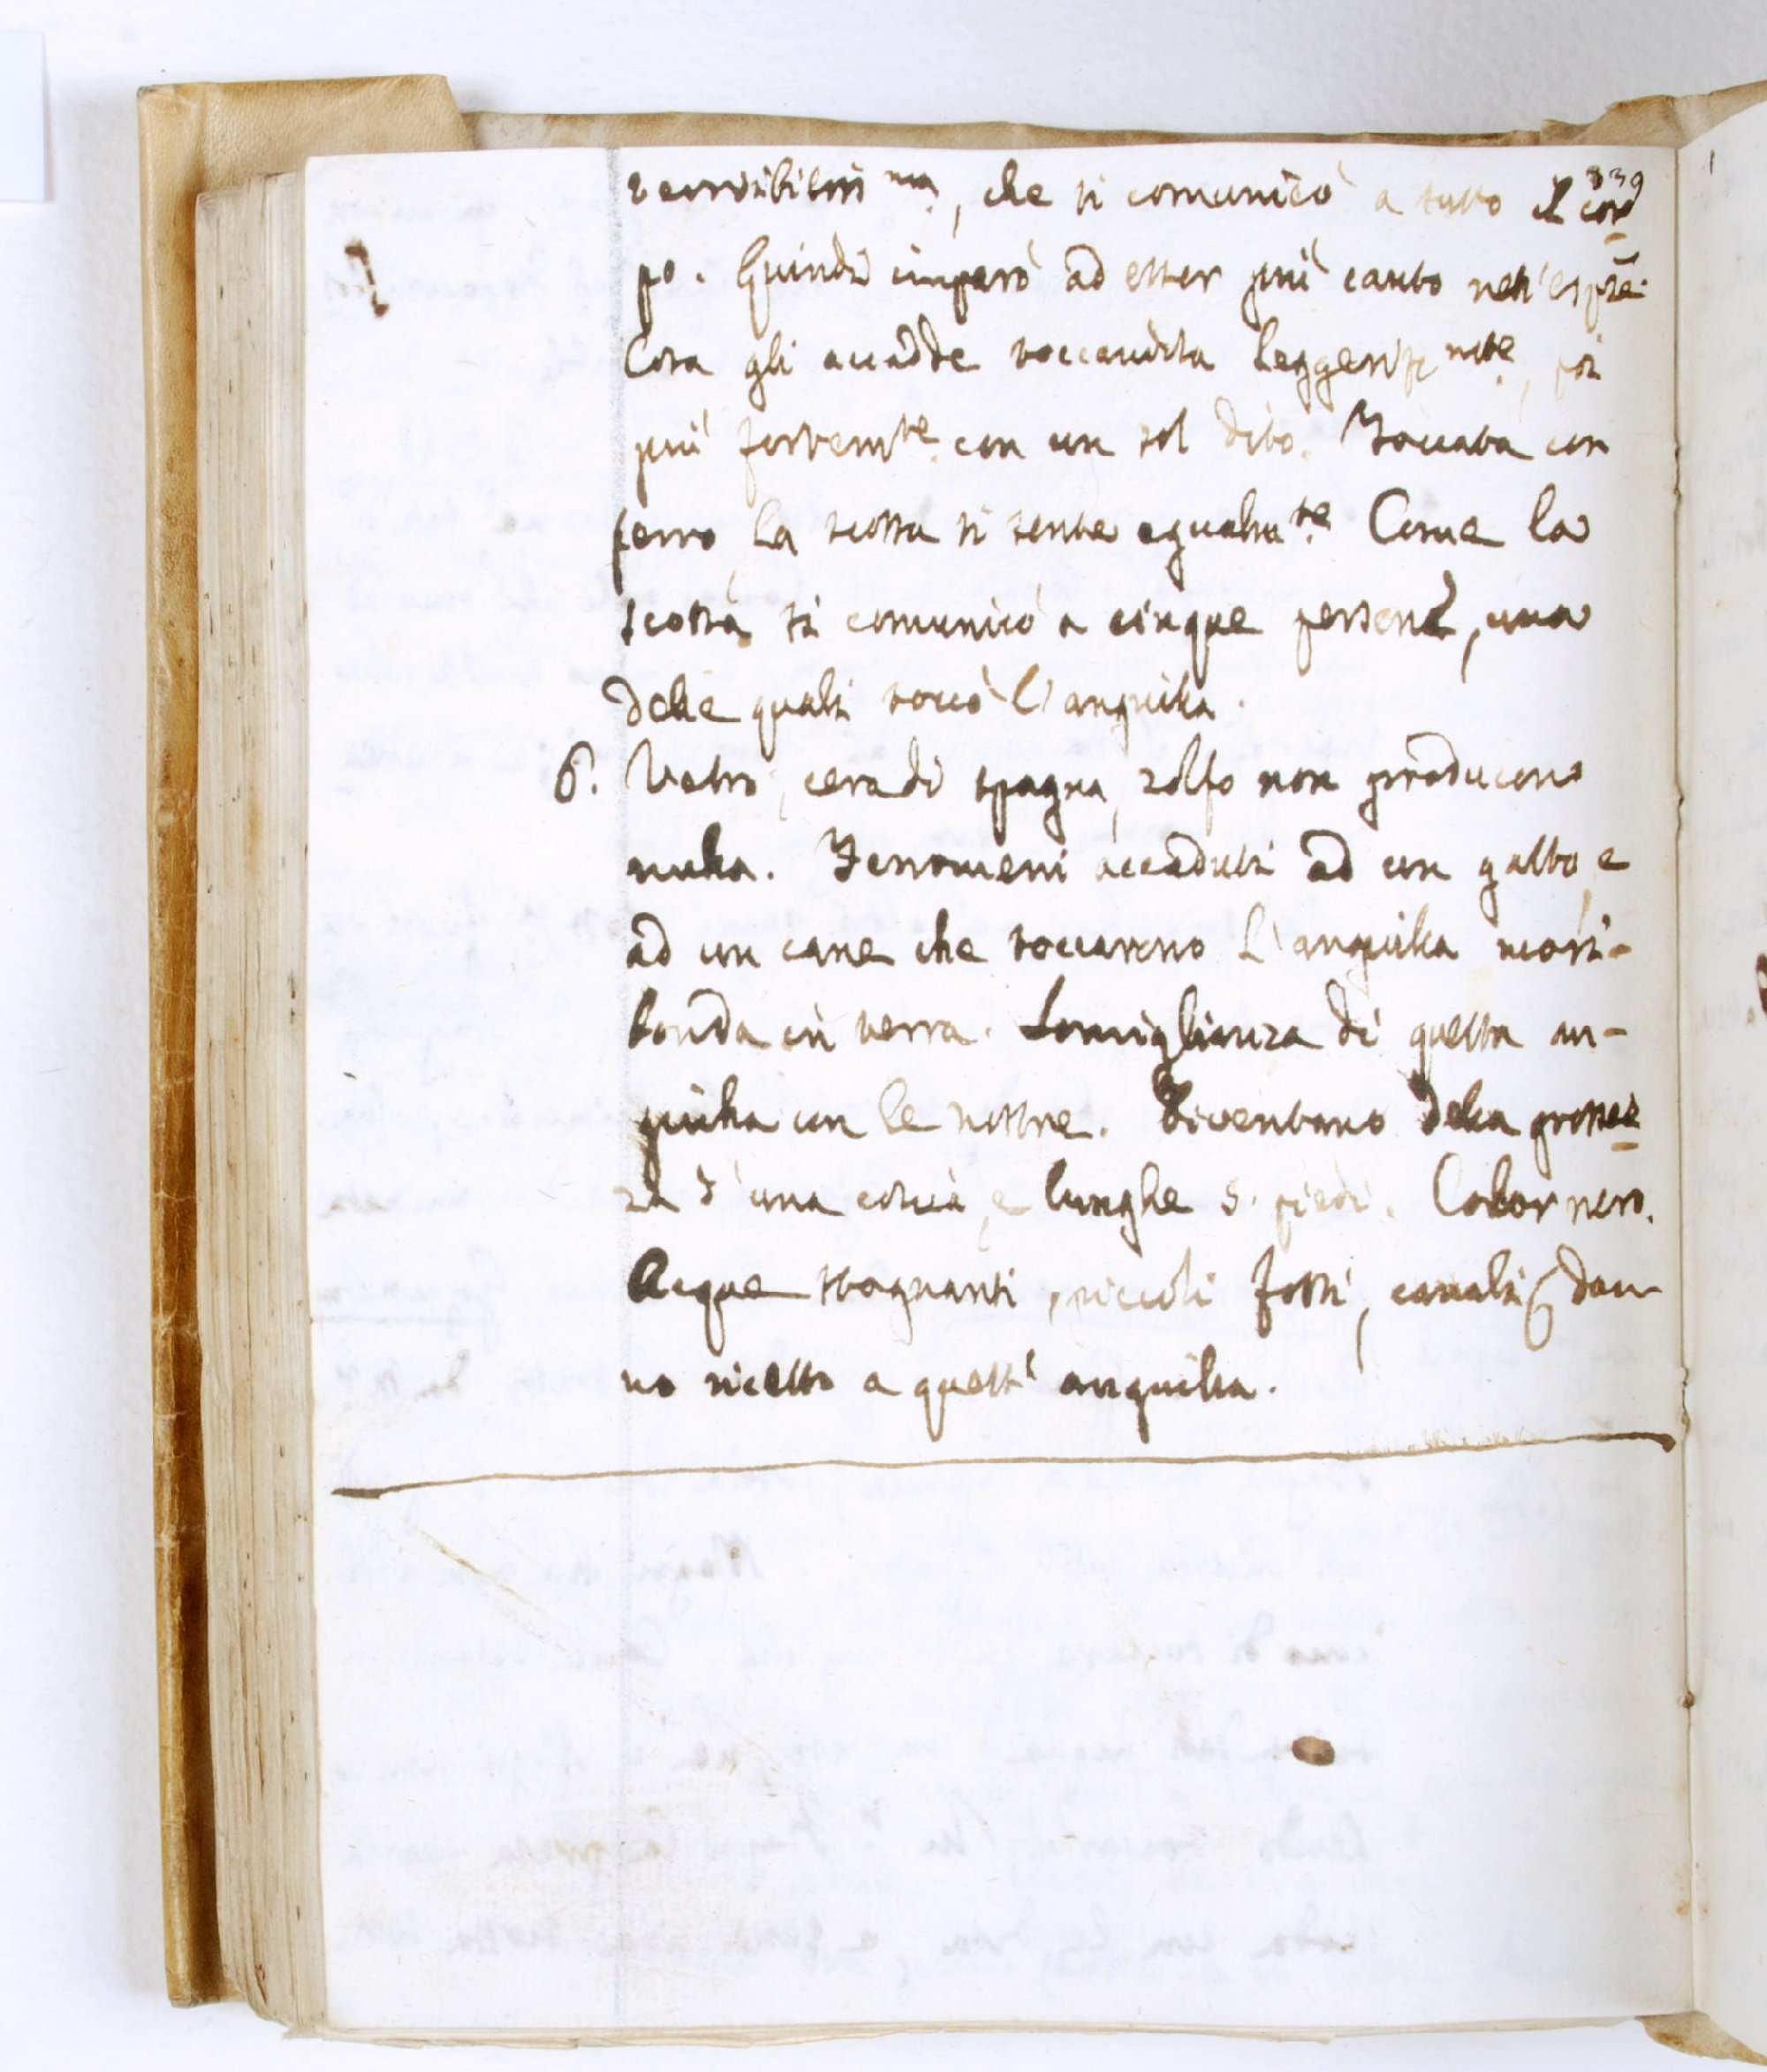 339
terribiliss.ma, che si comunicò a tutto il cor
po. Quindi imparò ad esser più cauto nell'espre.
Cosa gli accadde toccandola leggerissmte, poi
più fortemte. con un sol dito. Toccata con
ferro la scossa si sente egualmte. Come la
scossa si comunicò a cinque persone, una
delle quali toccò l'anguilla.
6. Vetro, cera di Spagna, zolfo non producono
nulla. Fenomeni accaduti ad un gatto, e
ad un cane che toccarono l'anguilla mori-
bonda in terra. Somiglianza di questa an-
guilla con le nostre. Diventano della grossez
za d'una coscia, e lunghe 5. piedi. Color nero.
Acque stagnanti, piccoli fossi, canali dan-
no ricetto a quest'anguilla.